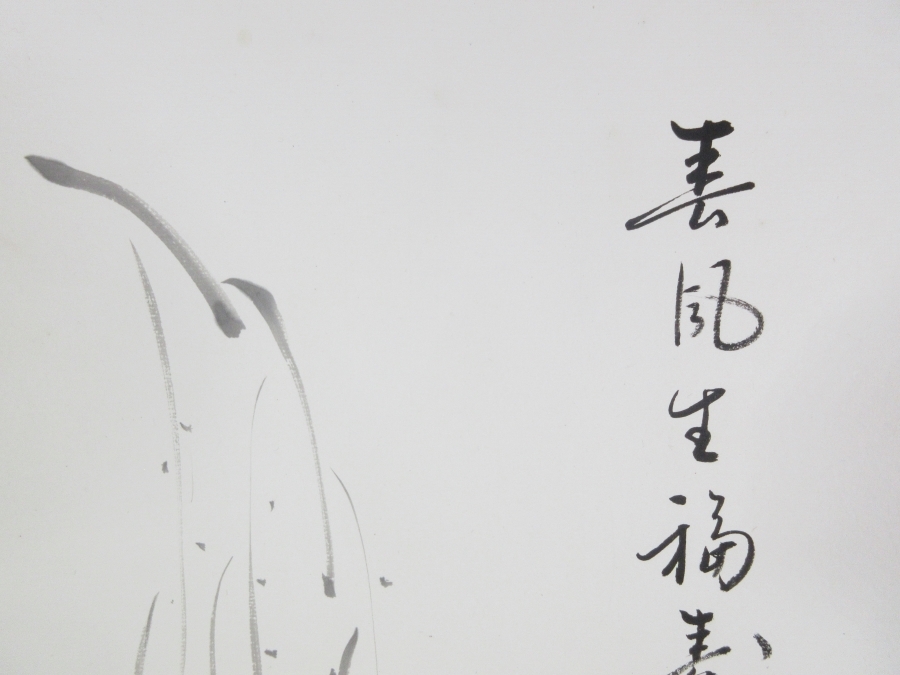 春風生福寿